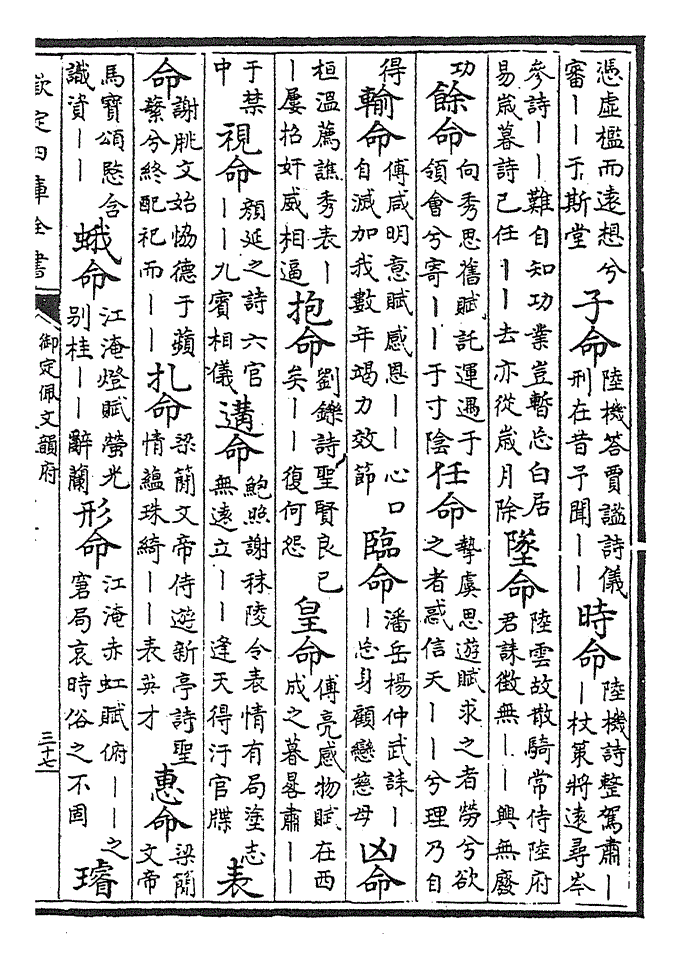 憑虛檻而遠想兮審丨丨于斯堂 子命 陸機答賈謐詩儀刑在昔予聞丨丨 時命 陸機詩整駕肅丨丨杖策將遠尋岑
參詩丨丨難自知功業豈暫忘白居易嵗暮詩已任丨丨去亦從嵗月除 墜命 陸雲故散騎常侍陸府君誄徴無丨丨興無廢
功 餘命 向秀思舊賦託運遇于領會兮寄丨丨于寸陰 任命 摯虞思遊賦求之者勞兮欲之者惑信天丨丨兮理乃自
得 輸命 傅咸明意賦感恩丨丨心口自減加我數年竭力效節 臨命 潘岳楊仲武誄丨丨忘身顧戀慈母 凶命
桓温薦譙秀表丨丨屢招奸威相逼 抱命 劉鑠詩聖賢良已矣丨丨復何怨 皇命 傅亮感物賦在西成之暮晷肅丨丨
于禁中 視命 顔延之詩六官丨丨九賓相儀 遘命 鮑照謝秣陵令表情有局塗志無遠立丨丨逢天得汙官牒 表
命 謝朓文始恊德于蘋蘩兮終配祀而丨丨 扎命 梁簡文帝侍遊新亭詩聖情藴珠綺丨丨表英才 惠命 梁簡文帝
馬寶頌慜含識資丨丨 蛾命 江淹燈賦螢光别桂丨丨辭蘭 形命 江淹赤虹賦俯丨丨之窘局哀時俗之不固 璿
欽定四庫全書 御定佩文韻府 三十七